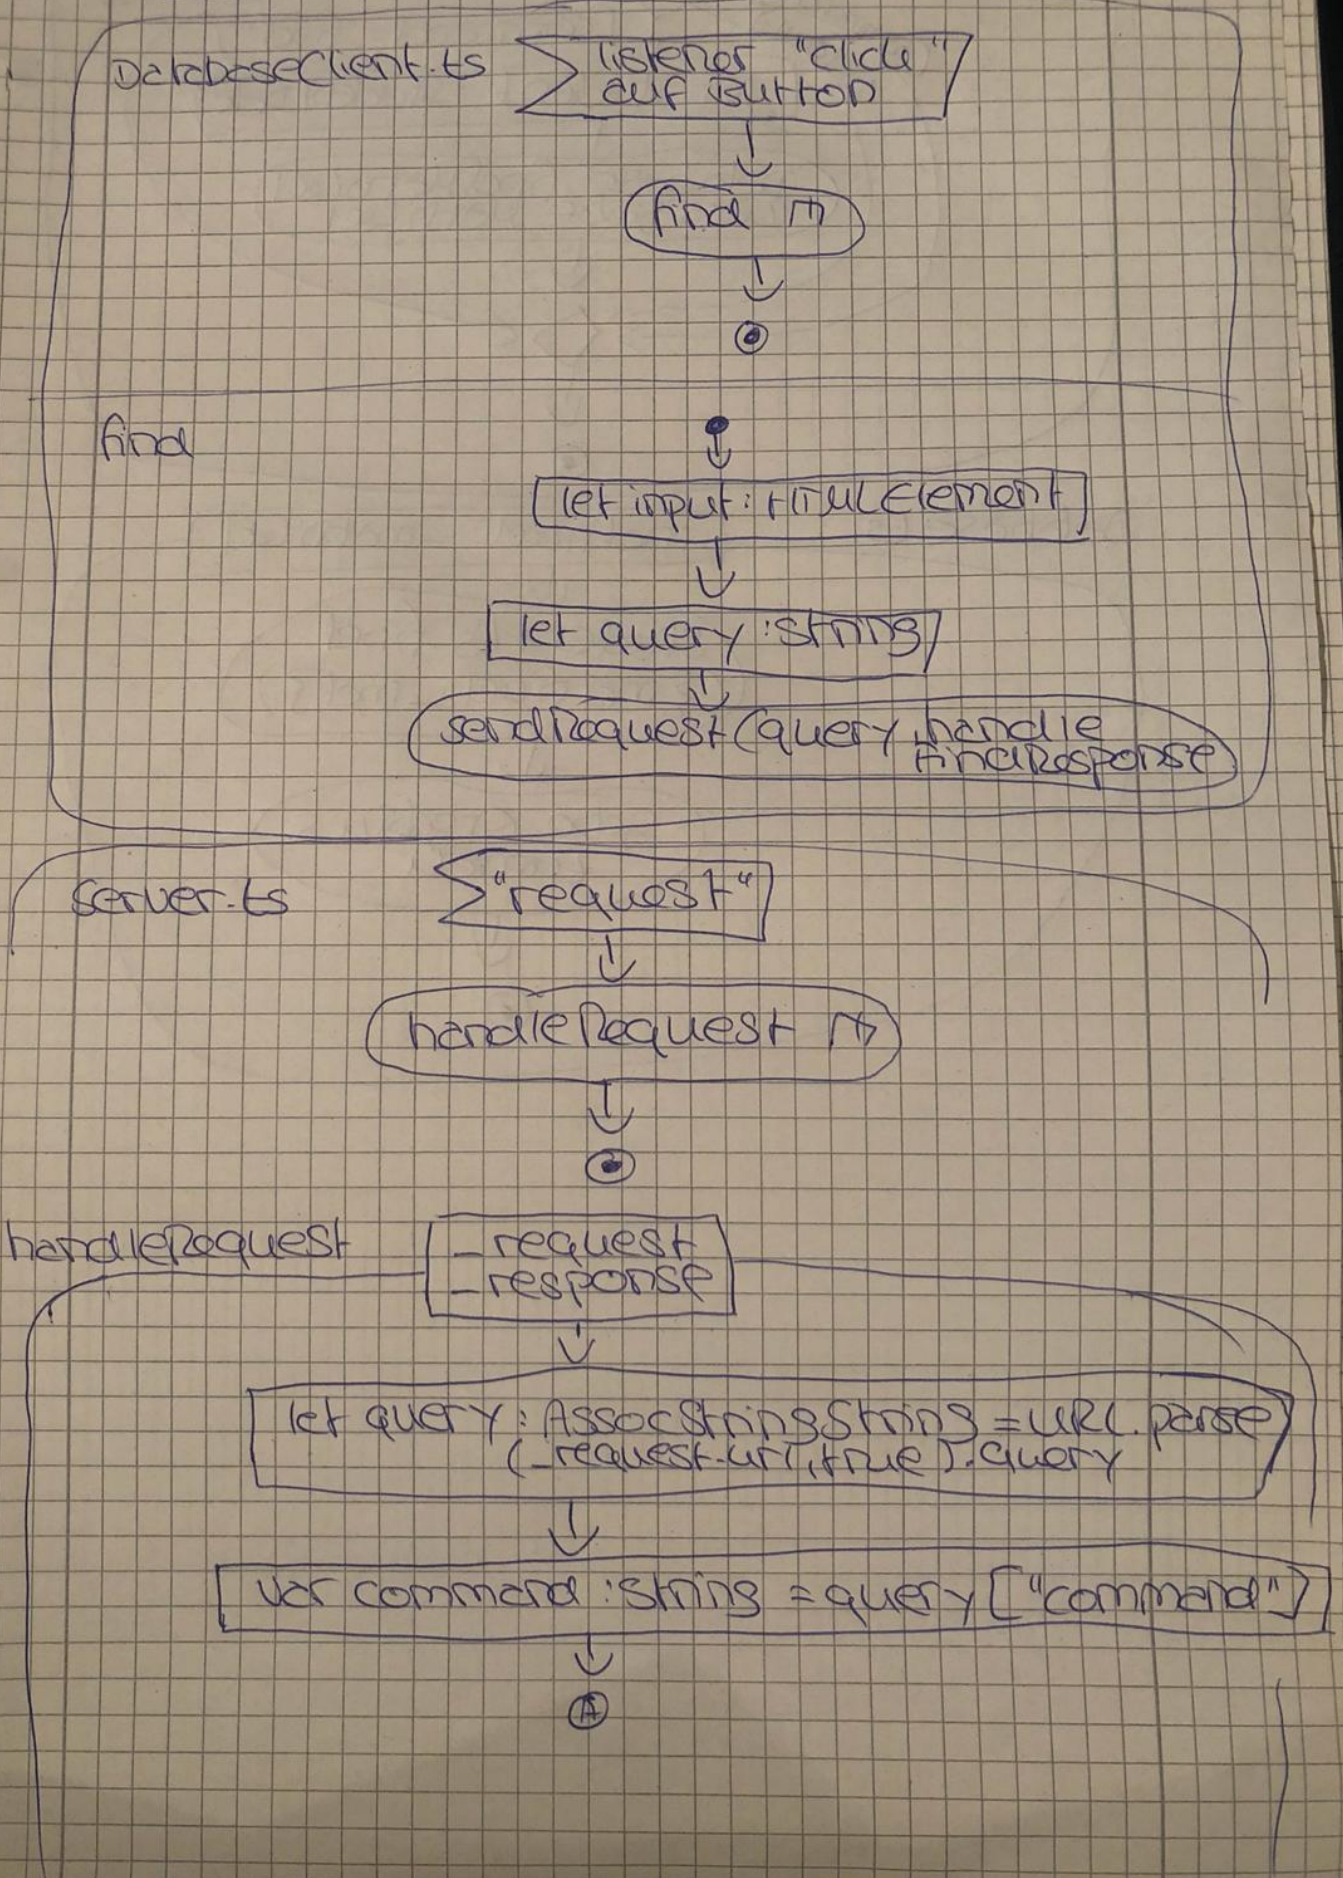 DatabaseClient.ts
listener "click"
auf Button
find
find
let input: HTMLElement
let query: string
sendRequest(query, handle
FindResponse
server.ts
"request"
handleRequest
handleRequest
_request
_response
let query: AssocStringString = URL.parse
(_request.url, true).query
var command: string = query["command"]
A